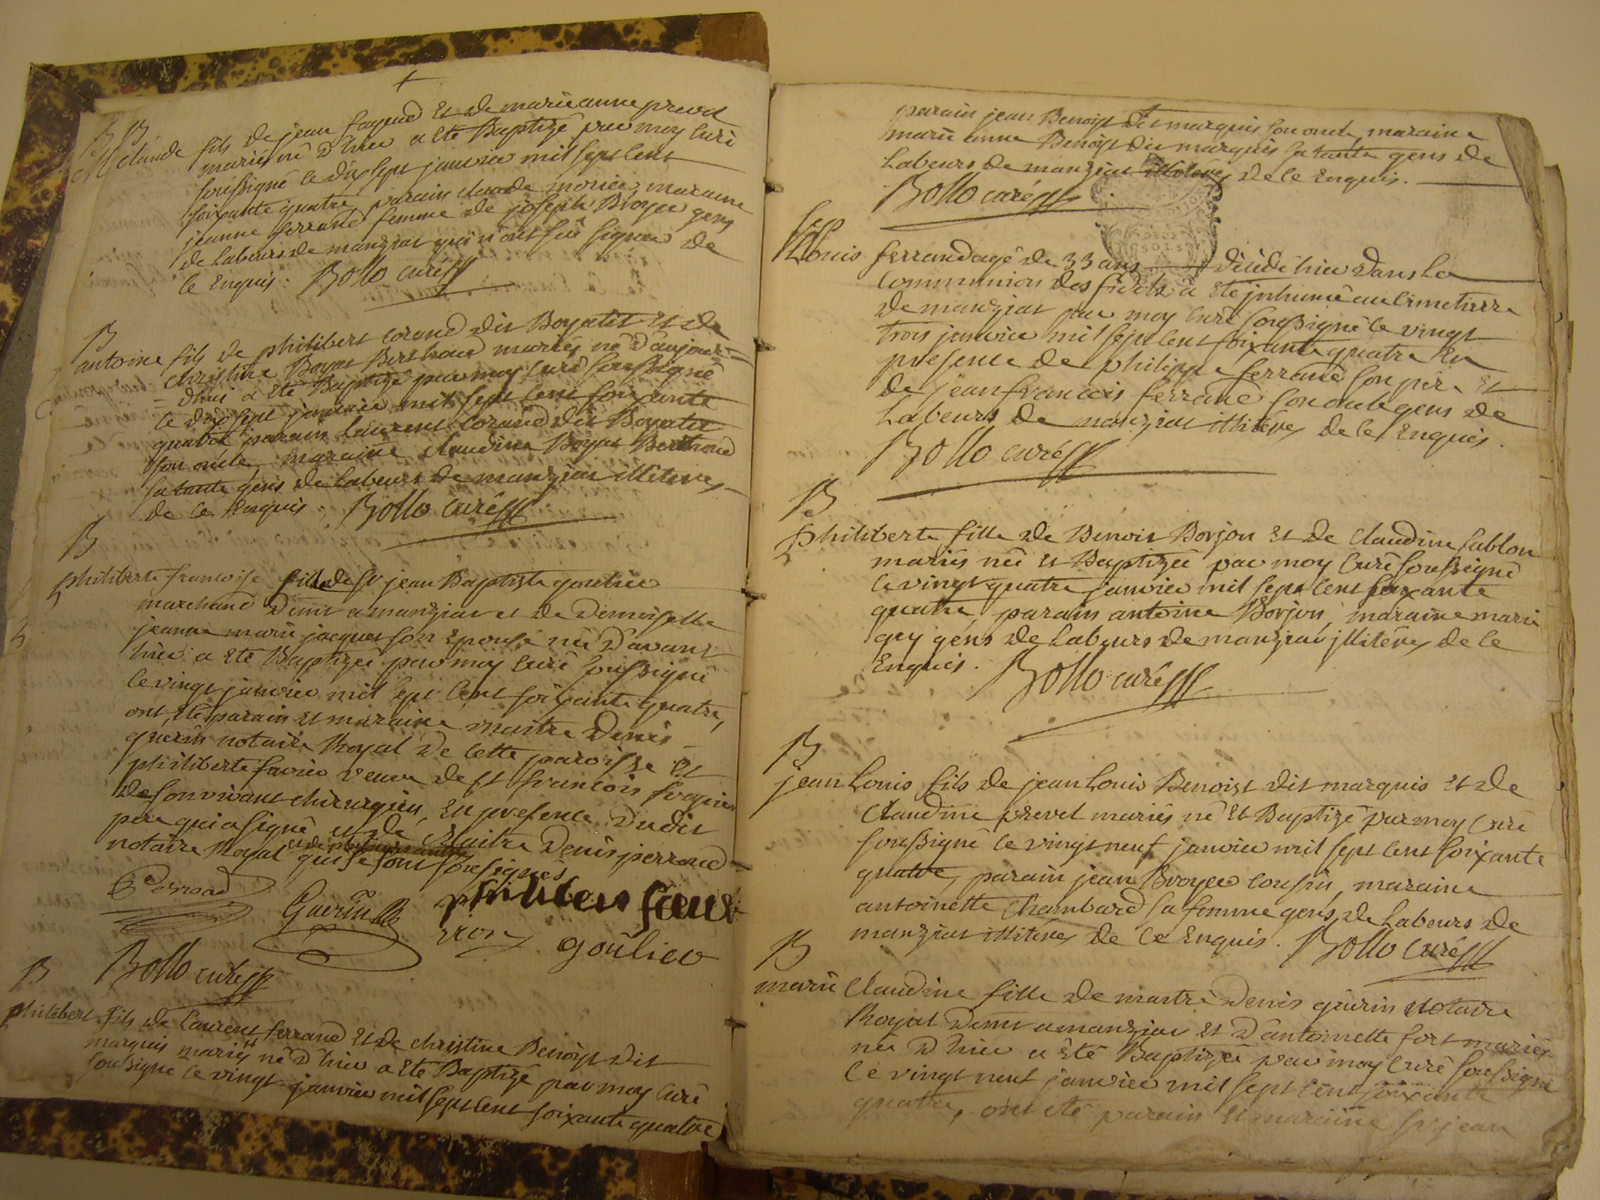 B
Claude fils de jean fayend et de marie anne prevet
mariés né d'hier a eté Baptizé par moy curé
soussigné le dix sept janvier mil sept cent
soixante quatre, parain claude morier, maraine
jeanne ferrand femme de joseph Broyer gens
de labeurs de manziat qui n'ont sçû signer de
ce Enquis. Bollo curé
B
antoine fils de philibert corand dit Boyatet et de
christine Boyat Bertrand mariés né d'aujour=
=d'hui a eté Baptizé par moy curé soussigné
le dix sept janvier mil sept cent soixante
quatre parain laurent corand dit Boyatet
son oncle, maraine claudine Boyat Bertrand
sa tante gens de labeurs de manziat illiterés
de ce Enquis. Bollo curé
B
philiberte francoise fille de sr jean Baptiste goulier
marchand demt a manziat et de demoiselle
jeanne marie jacquet son epouse née d'avant
hier a eté Baptizée par moy curé soussigné
le vingt janvier mil sept cent soixante quatre,
ont eté parain et maraine maitre denis
guerin notaire Royal de cette paroisse et
philiberte favier veuve de sr francois
de son vivant chirurgien, en presence dudit
pere qui a signé et de maitre denis perraud
notaire Royal qui se sont soussignés
perraud Guerin philiberte favier
goulier
Bollo curé
B
philibert fils de laurent ferrand et de christine Benoist dit
marquis mariés né d'hier a eté Baptizé par moy curé
soussigné le vingt janvier mil sept cent soixante quatre
parain jean Benoist dit marquis son oncle, maraine
marie anne Benoist dit marquis sa tante gens de
labeurs de manziat illiterés de ce Enquis.
Bollo curé
Louis ferrand agé de 33 ans décédé hier dans la
communion des fidels a eté inhumé au cimetierre
de manziat par moy curé soussigné le vingt
trois janvier mil sept cent soixante quatre en
presence de philippe ferrand son pere et
de jean francois ferrand son oncle gens de
labeurs de manziat illiterés de ce Enquis.
Bollo curé
B
philiberte fille de Benoit Borjon et de claudine sablon
mariés née et Baptizée par moy curé soussigné
le vingt quatre janvier mil sept cent soixante
quatre, parain antoine Borjon, maraine marie
gey gens de labeurs de manziat illiterés de ce
Enquis. Bollo curé
B
jean Louis fils de jean Louis Benoist dit marquis et de
claudine prevet mariés né et Baptizé par moy curé
soussigné le vingt neuf janvier mil sept cent soixante
quatre, parain jean Broyer cousin, maraine
antoinette chambard sa femme gens de labeurs de
manziat illiterés de ce Enquis. Bollo curé
B
marie Claudine fille de maitre denis guerin notaire
Royal demt a manziat et d'antoinette fort mariés
née d'hier a été Baptizée par moy curé soussigné
le vingt neuf janvier mil sept cent soixante
quatre, ont eté parain et maraine sr jean